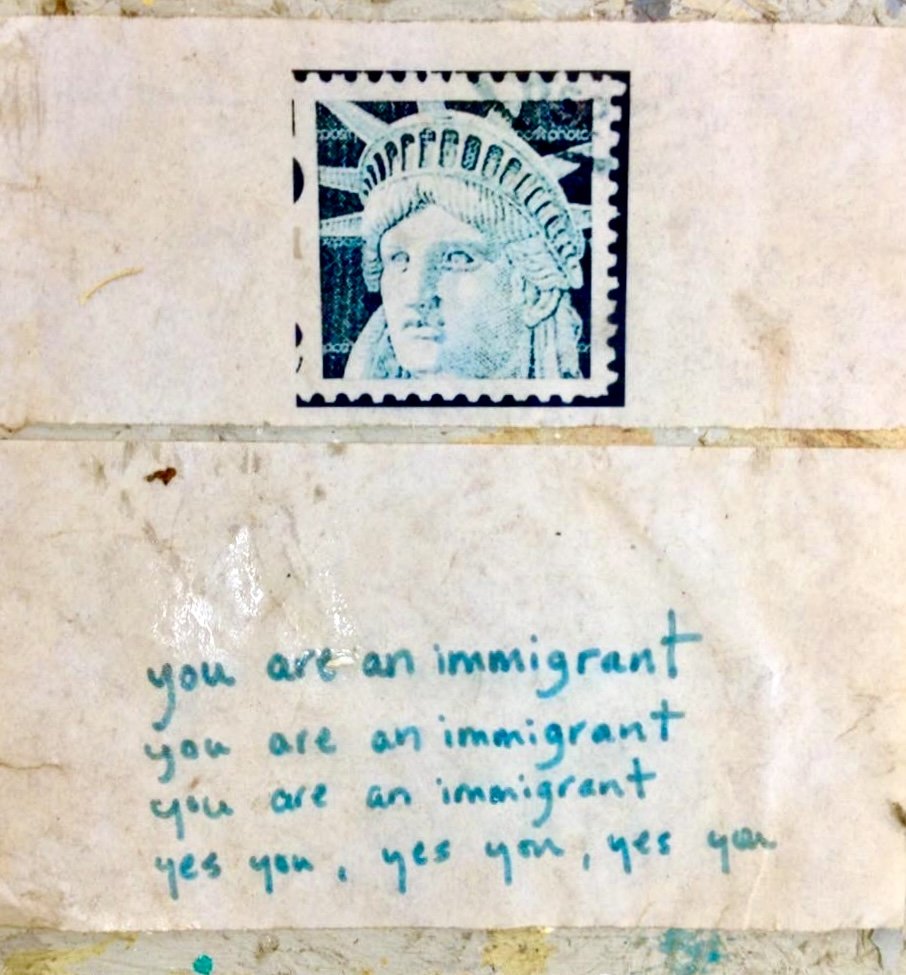 you are an immigrant
you are an immigrant
you are an immigrant
yes you, yes you, yes you